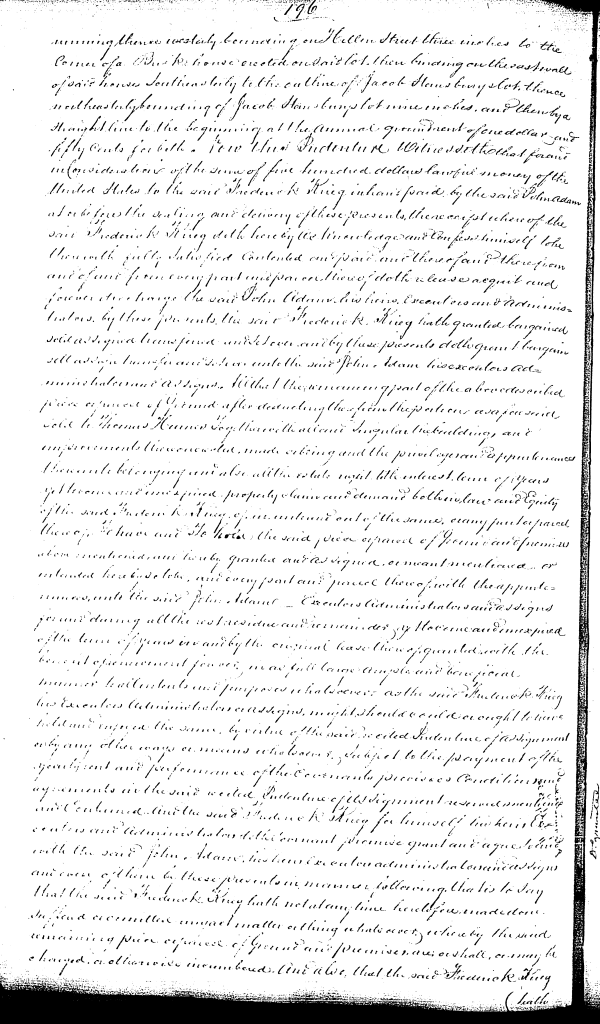 196
running thence westerly bounding on Hillen Street three inches to the
Corner of a Brick house erected on said lot, then binding on the east wall
of said houses Southeasterly to the outline of Jacob Hansburys lot, thence
northeasterly bounding of Jacob Hansburys lot nine inches, and then by a
straight line to the beginning at the annual ground rent of one dollar and
fifty Cents for both. Now this Indenture Witnesseth that for and
in Consideration of the sum of five hundred dollars lawful money of the
United States to the said Frederick King in hand paid by the said John Adam
at or before the sealing and delivery of these presents, the receipt whereof the
said Frederick King doth hereby acknowledge and Confess himself to be
therewith fully Satisfied Contented and paid and thereof and therefrom
and of and from every part and parcel thereof doth release acquit and
forever discharge the said John Adams, his heirs, Executors and Adminis-
trators, by these presents, the said Frederick King hath granted bargained
sold assigned transferred and set over and by these presents doth grant bargain
sell assign transfer and set over unto the said John Adam his executors Ad-
ministrators and assigns. All that the remaining part of the above described
piece or parcel of Ground after deducting therefrom the portion as aforesaid
sold to Thomas Together with all and Singular the buildings, and
improvements thereon erected, made or being and the privileges and appurtenances
thereunto belonging and also all the estate right, title interest, term of years
yet to come and unexpired, property claim and demand both in law and Equity
of the said Frederick King, of, in unto and out of the same, or any part or parcel
thereof. To have and To hold the said piece or parcel of Ground and premises
above mentioned, and hereby granted and assigned, or meant mentioned or
intended hereby so to be, and every part and parcel thereof, with the appurte-
nances, unto the said John Adams Executors Administrators and assigns
for and during all the rest residue and remainder yet to come and unexpired
of the term of years in and by the original lease thereof granted, with the
benefit of renewal forever, in as full large ample and beneficial
manner to all intents and purposes whatsoever as the said Frederick King
his Executors Administrators or assigns, might should could or ought to have
held and enjoyed the same, by virtue of the said recited Indenture of assignment
or by any other ways or means whatsoever, Subject to the payment of the
yearly rent and performance of the Covenants provisoes Conditions and
agreements in the said recited Indenture of Assignment reserved mentioned
and Contained. And the said Frederick King for himself his heirs Ex-
ecutors and Administrators doth covenant promise grant and agree to and
with the said John Adam, his heirs executors administrators and assigns
and every of them by these presents in manner following, that is to say
that the said Frederick King hath not at any time heretofore, made done
suffered or committed any act matter or thing whatsoever, whereby the said
remaining piece or parcel of Ground and premises are, or shall, or may be
charged, or otherwise incumbered. And also, that the said Frederick King
(hath